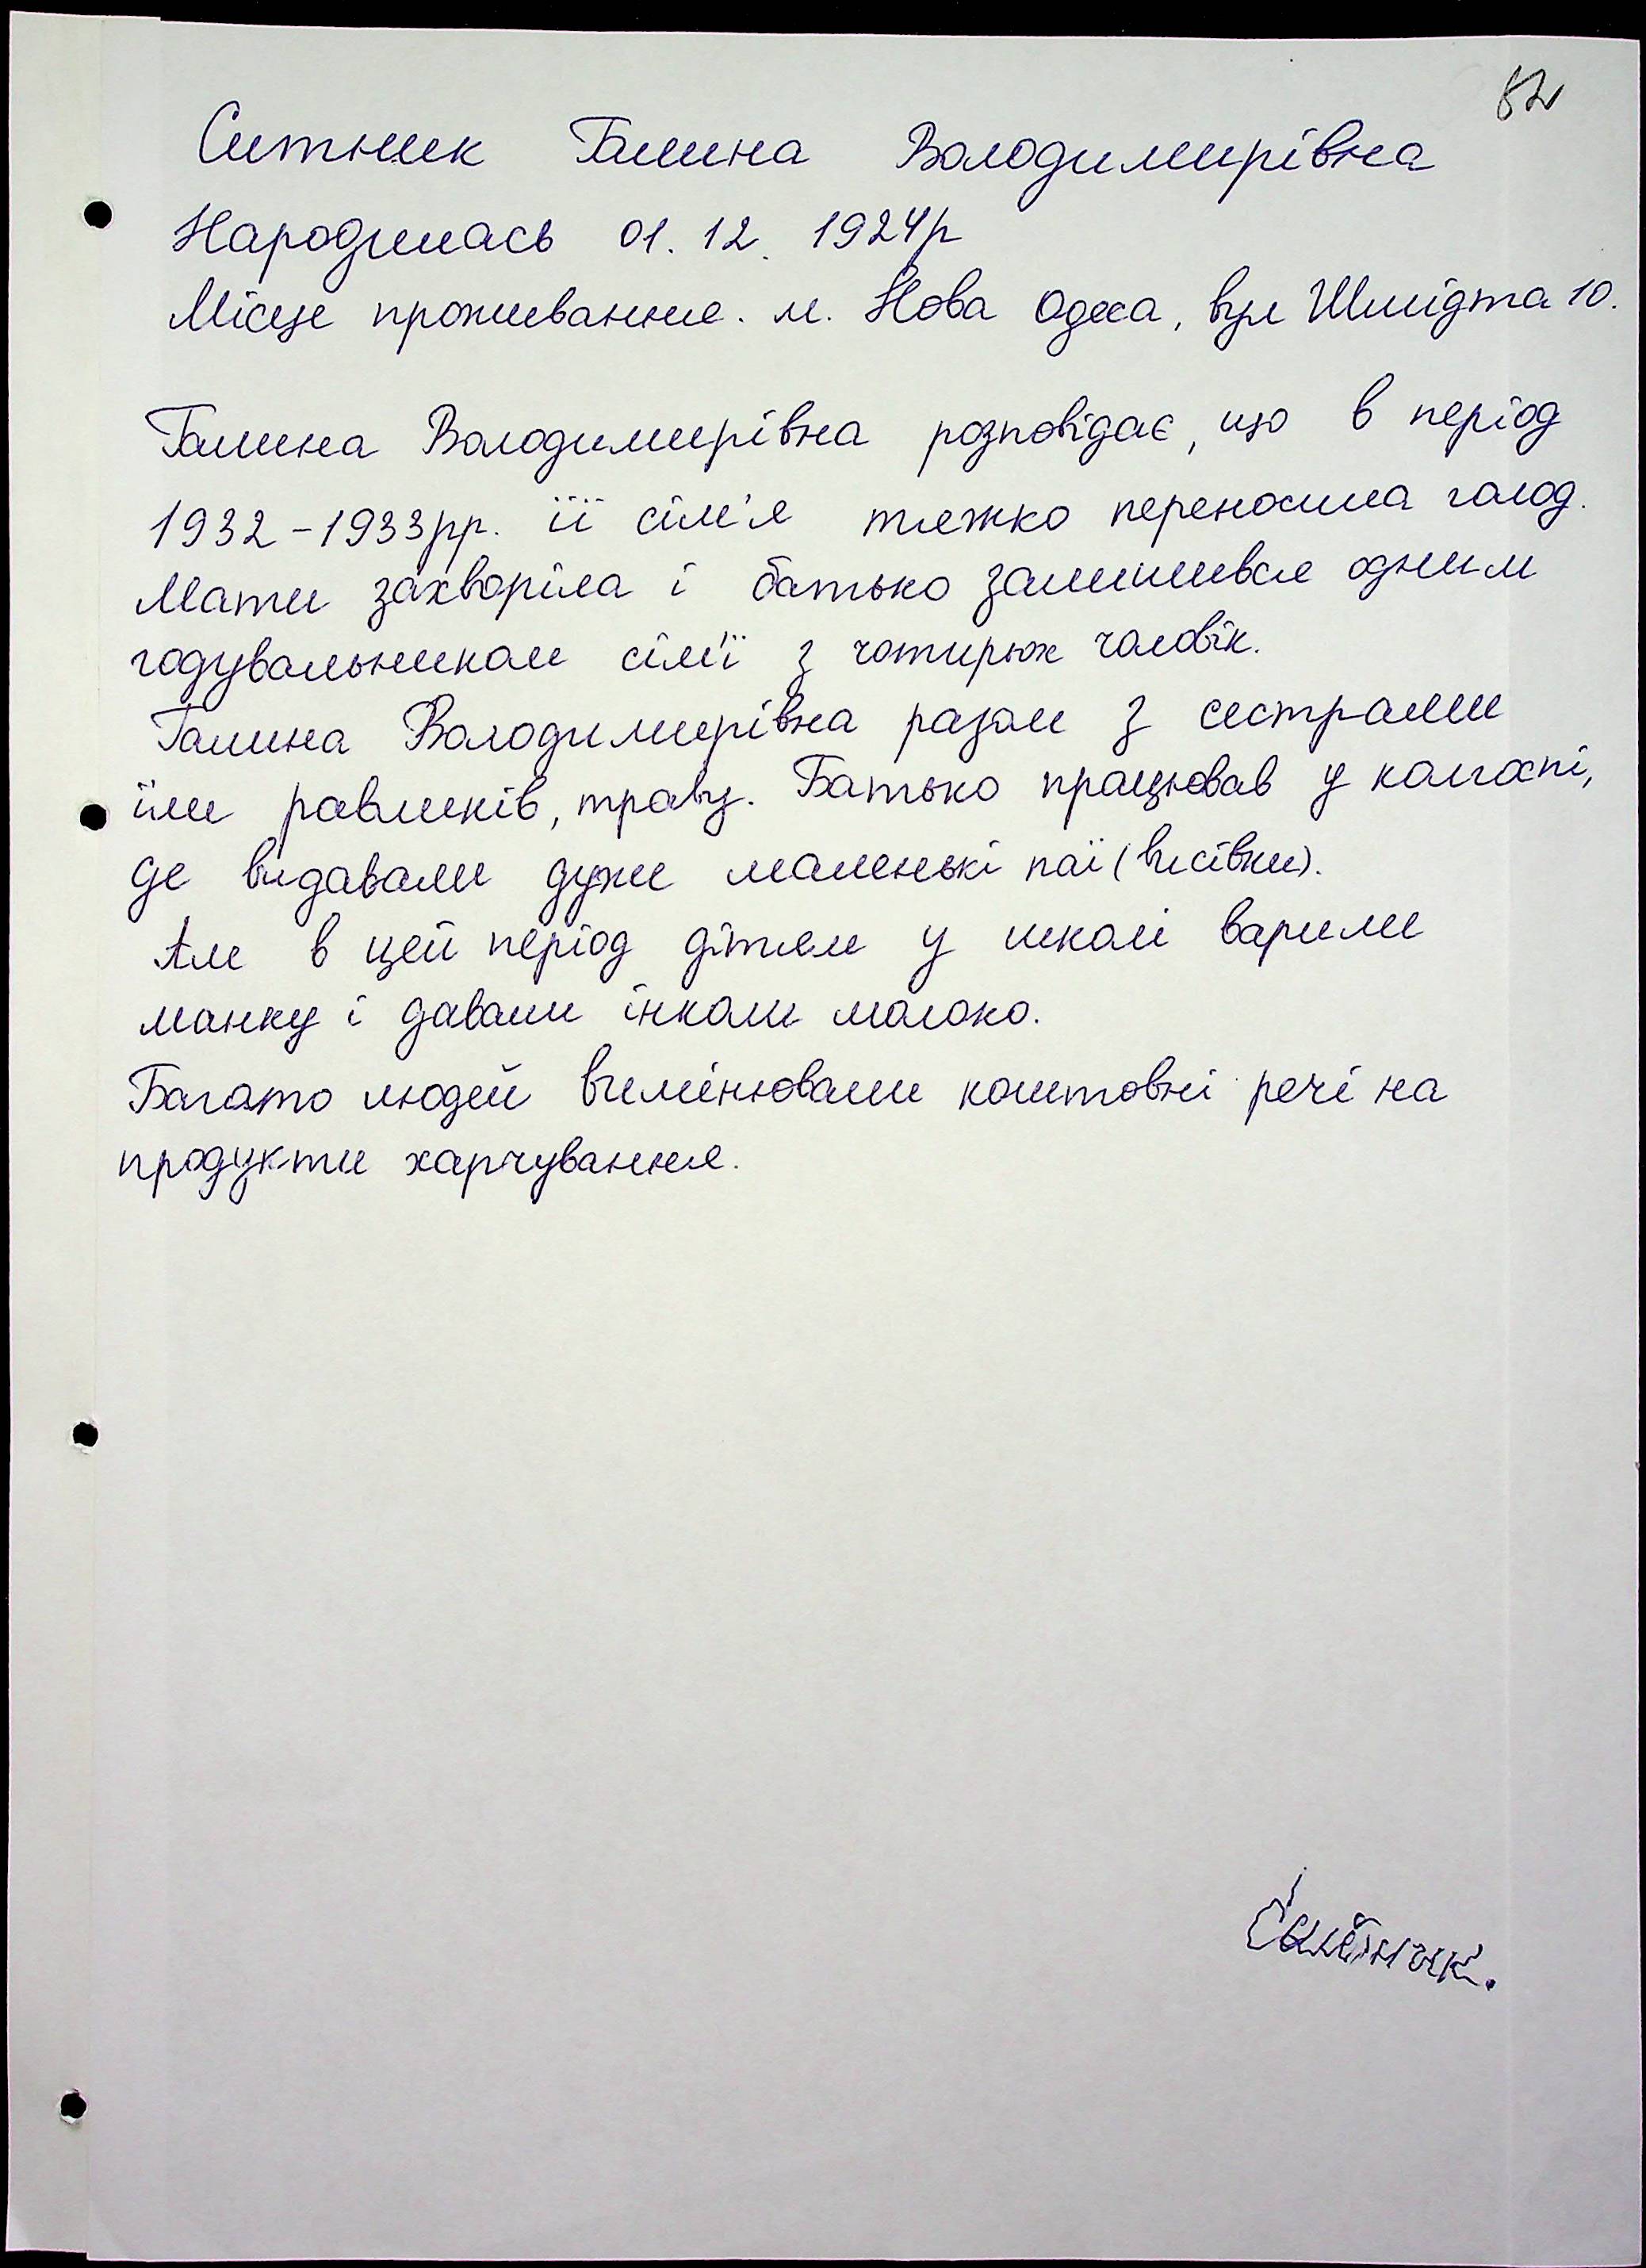 82
Ситник Галина Володимирівна
Народилась 01. 12. 1924р
Місце проживання. м. Нова Одеса, вул Шмідта 10.
Галина Володимирівна розповідає, що в період
1932-1933рр. її сім'я тяжко переносила голод.
Мати захворіла і батько залишився одним
годувальником сім'ї з чотирьох чоловік.
Галина Володимирівна разом з сестрами
їли равликів, траву. Батько працював у колгоспі,
де видавали дуже маленькі паї (висівки).
Але в цей період дітям у школі варили
манку і давали інколи молоко.
Багато людей вимінювали коштовні речі на
продукти харчування.
Ситник.